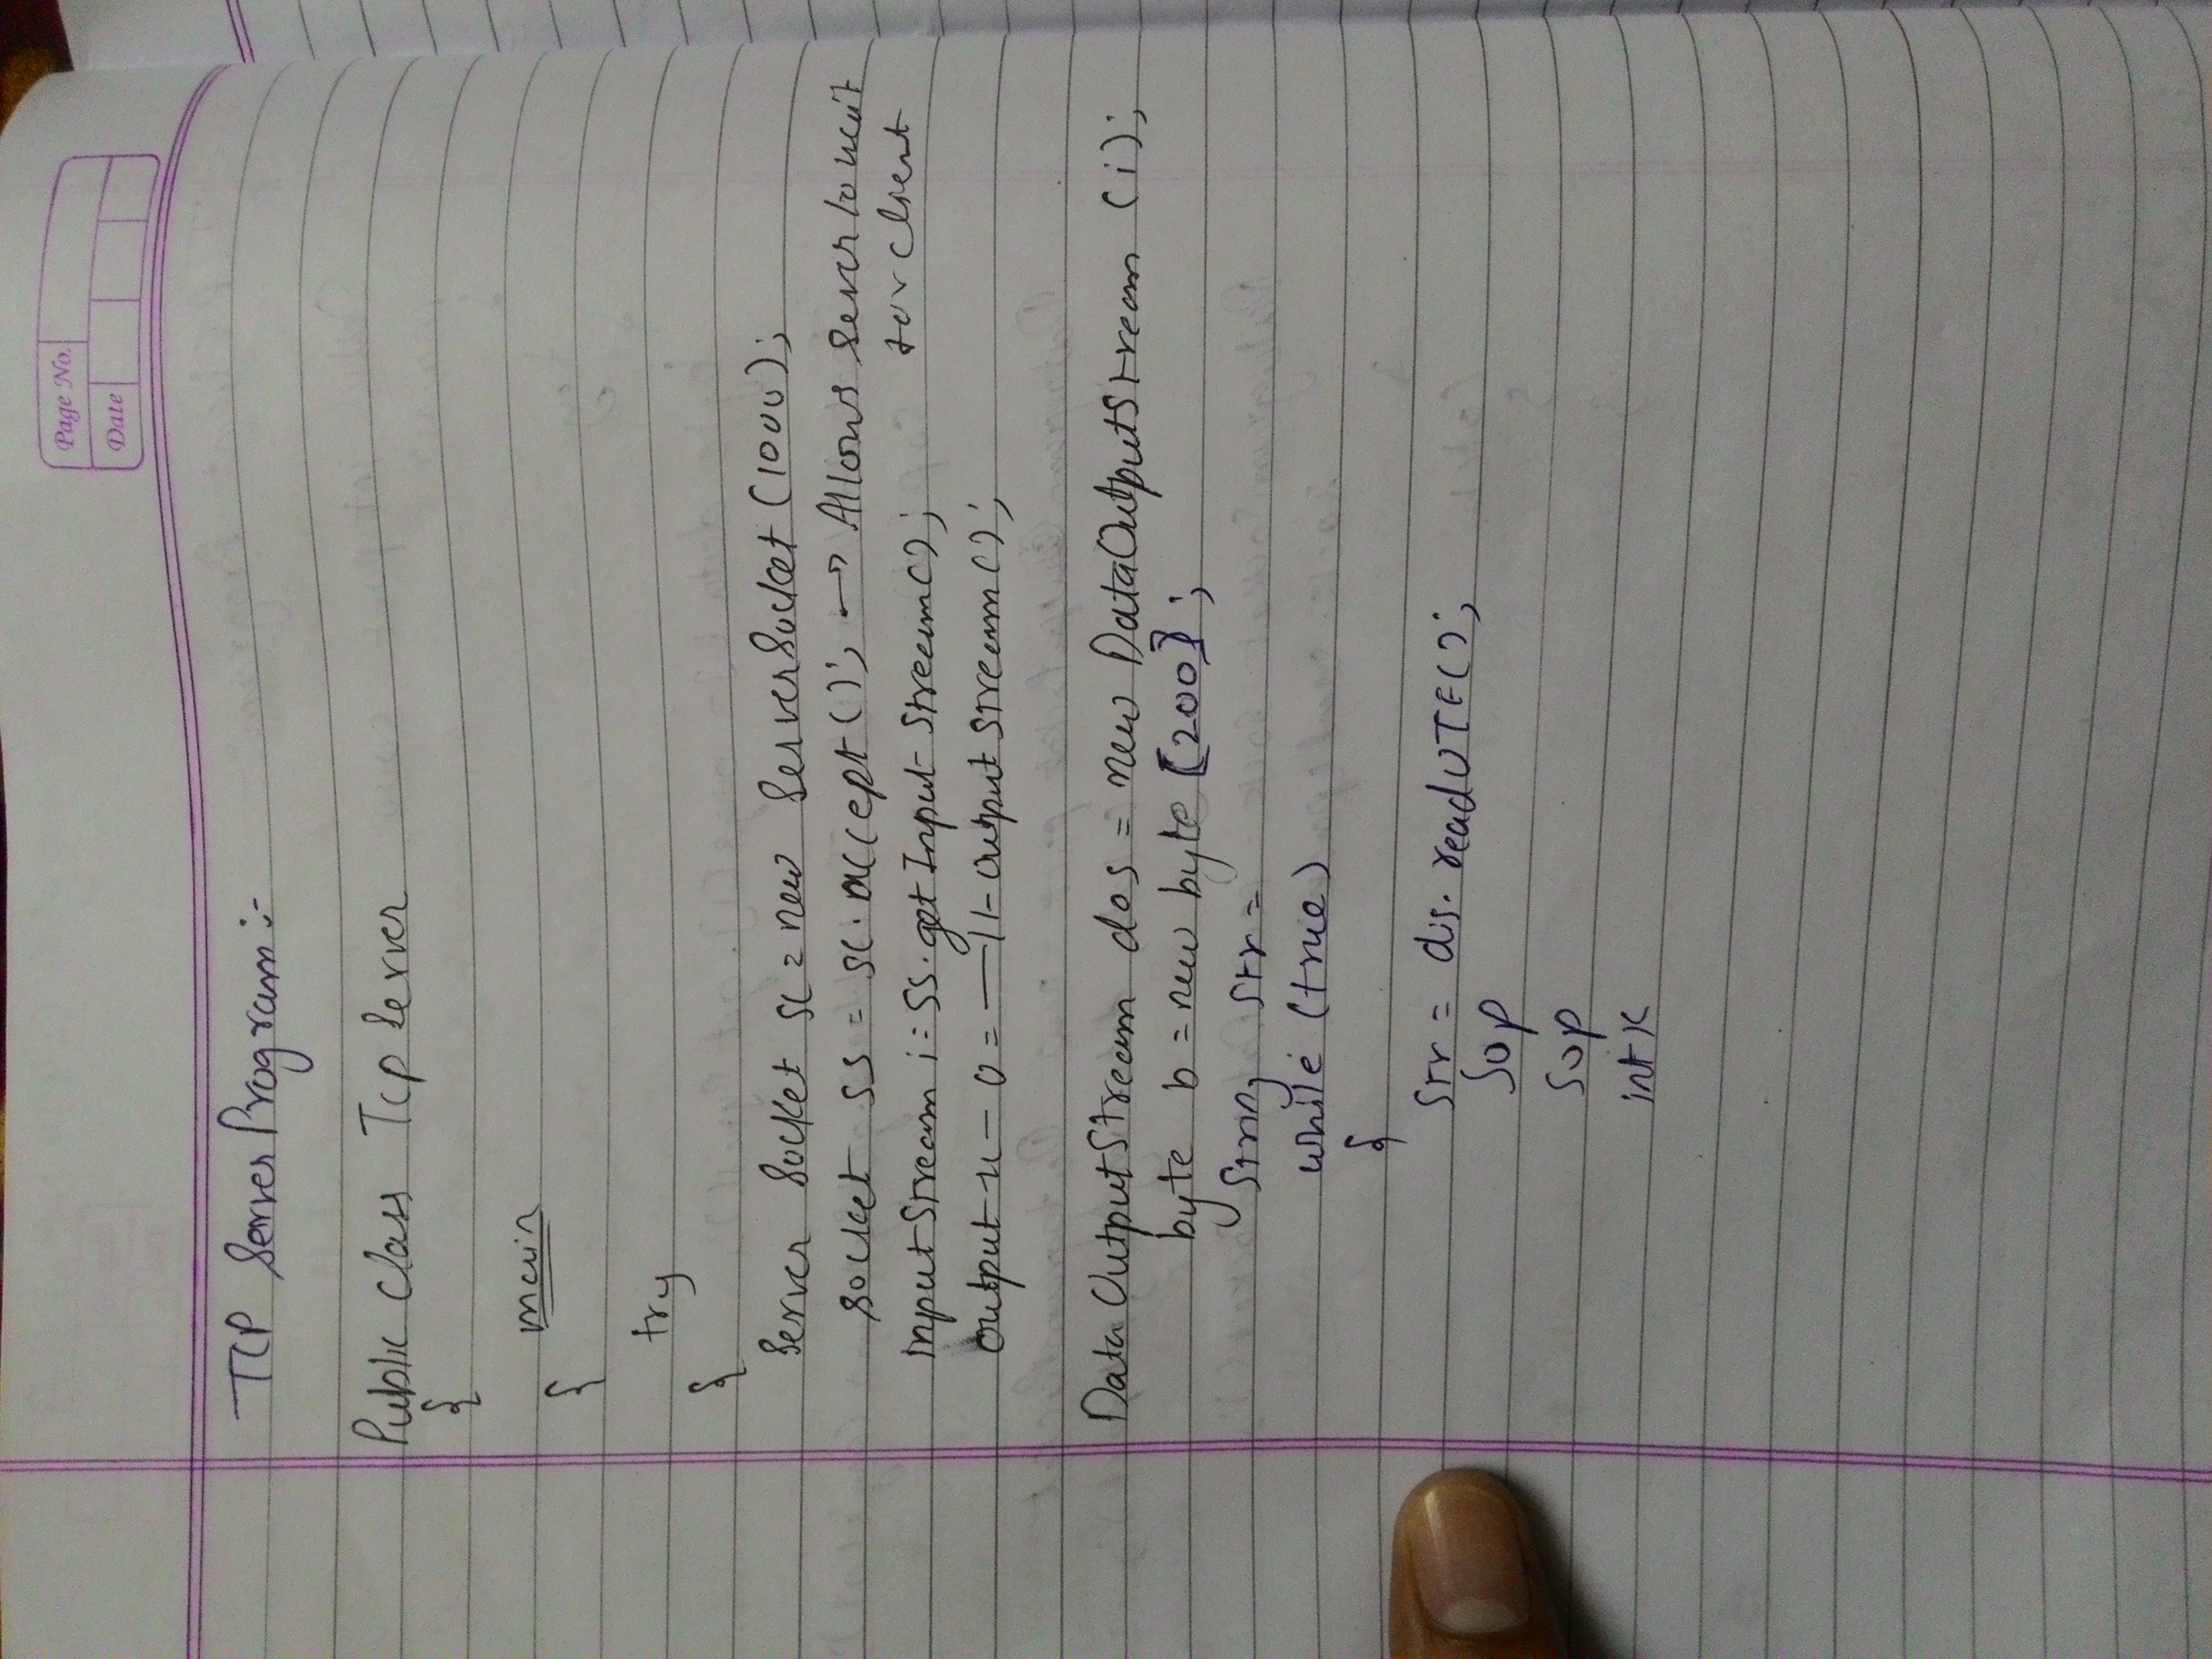 Page No.
Date
TCP Server Program :-
Public Class Tcp Server
{
main
{
try
{
Server Socket sc = new ServerSocket (1000);
socket ss = sc.accept(); → Allows sever to wait
for client
InputStream i = ss.get Input Stream();
Output -11- o = -11- Output Stream();
Data OutputStream dos = new DataOutputStream (i);
byte b = new byte [200];
String str =
while (true)
{
str = dis. readUTF();
Sop
Sop
int k